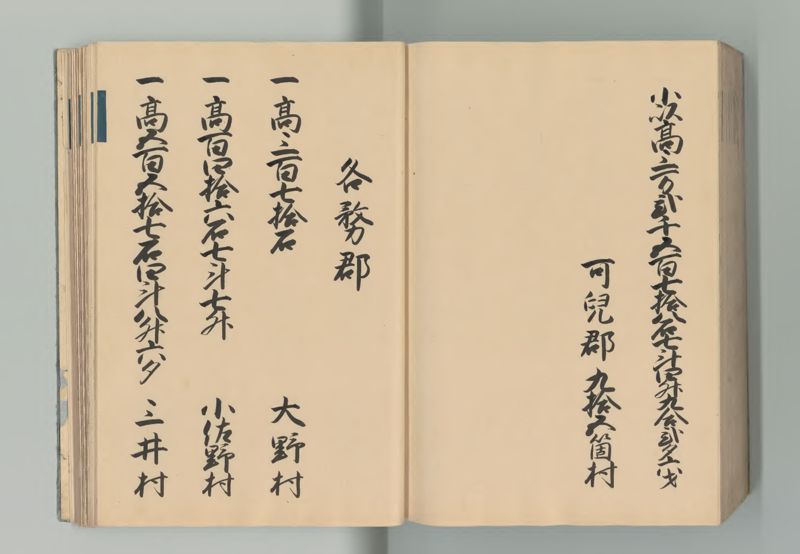 小以高三万弐千五百七拾八石七斗四升九合弐夕八才
可兒郡九拾五箇村
各務郡
一高三百七拾石 大野村
一高百四拾六石七斗七升 小佐野村
一高五百五拾七石四斗八升六夕 三井村